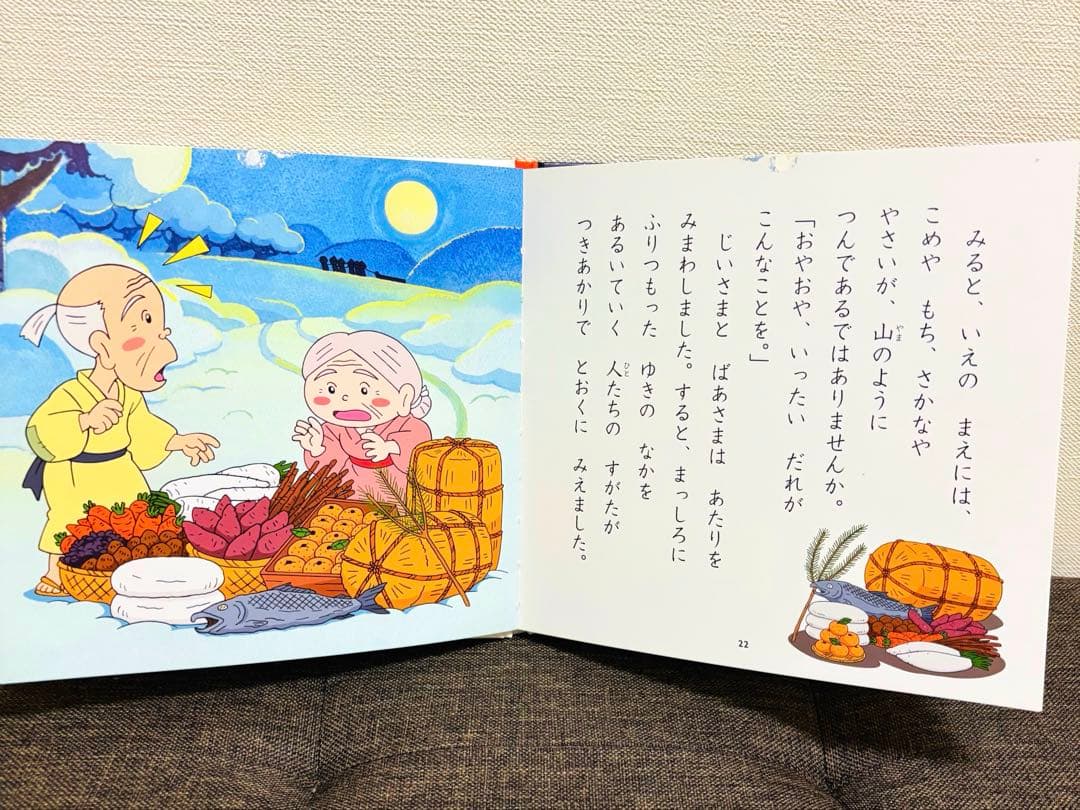 みると、いえの まえには、
こめや もち、さかなや
やさいが、山のように
つんであるではありませんか。
「おやおや、いったい だれが
こんなことを。」
じいさまと ばあさまは あたりを
みまわしました。すると、まっしろに
ふりつもった ゆきの なかを
あるいていく 人たちの すがたが
つきあかりで とおくに みえました。
やま
ひと
22